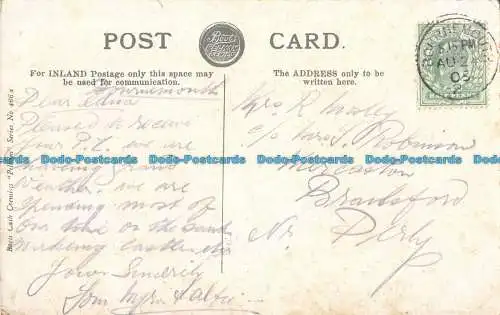 POST CARD.
Boots CASH CHEMISTS
For INLAND Postage only this space may be used for communication.
The ADDRESS only to be written here.
Bournemouth
Dear Edna
Pleased to receive
your P.C. we are
having grand
weather. we are
spending most of
our time on the sands
making castles
Yours Sincerily
Tom
Mrs R
c/o Mrs S. Robinson
Mercaston
Brailsford
Nr. Derby
Boots Cash Chemists "Pelham" Series No. 466
BOURNEMOUTH
6.15 PM
AU 2
05
Dodo-Postcards Dodo-Postcards Dodo-Postcards Dodo-Postcards
Dodo-Postcards Dodo-Postcards Dodo-Postcards Dodo-Postcards